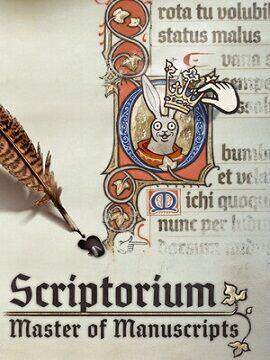 rota tu volubil
status malus
vana s
sempe
bumb
et vela
Michi quoqu
nunc per ludu
dorsum nudu
Scriptorium
Master of Manuscripts